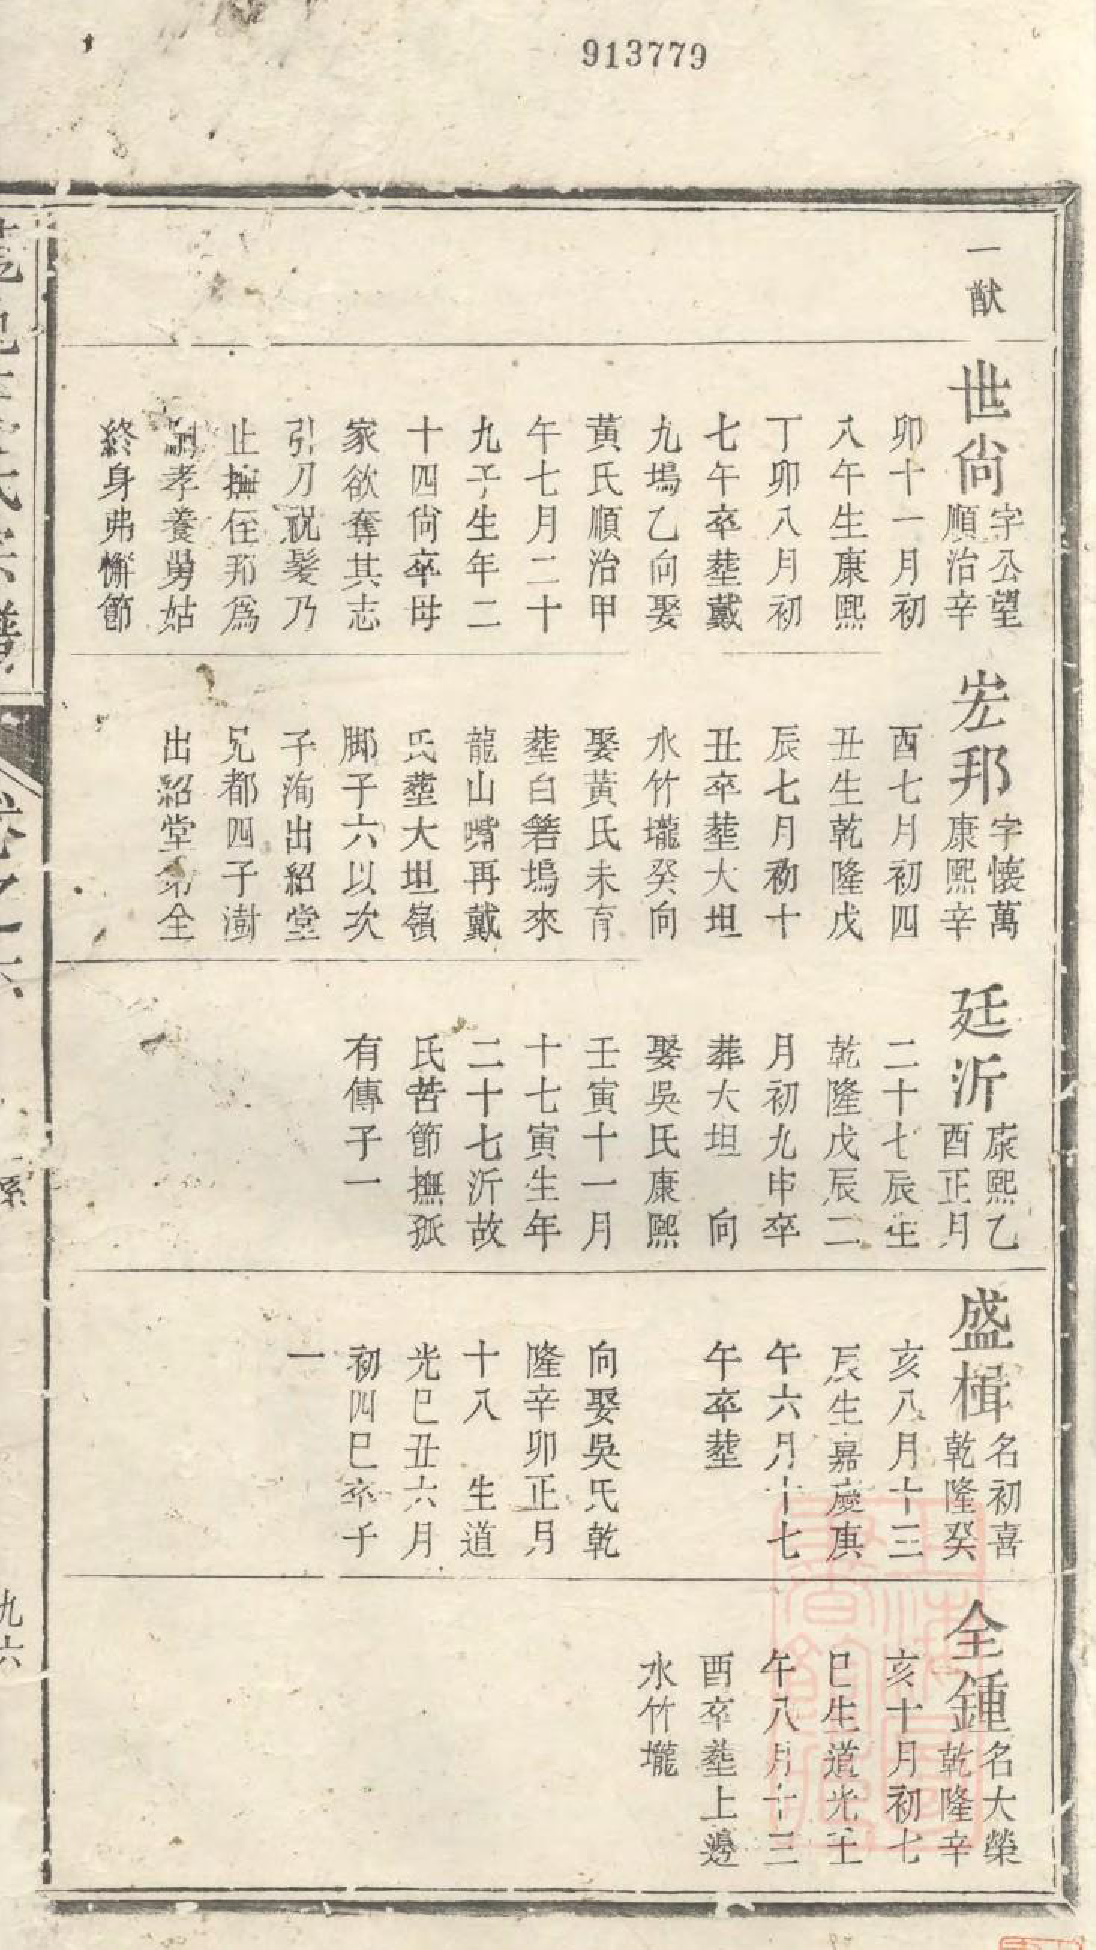 913779
一猷
世尚
字公望
順治辛
卯十一月初
八午生康熙
丁卯八月初
七午卒塟戴
九塢乙向娶
黃氏順治甲
午七月二十
九子生年二
十四尙卒母
家欲奪其志
引刀祝髮乃
止撫侄邦爲
嗣孝養舅姑
終身弗懈節
宏邦
字懷萬
康熙辛
酉七月初四
丑生乾隆戊
辰七月初十
丑卒塟大坦
水竹壠癸向
娶黃氏未育
塟白箬塢來
龍山嘴再戴
氏塟大坦嶺
脚子六以次
子洵出紹堂
兄都四子澍
出紹堂弟全
廷沂
康熙乙
酉正月
二十七辰生
乾隆戊辰二
月初九申卒
葬大坦　向
娶吳氏康熙
壬寅十一月
十七寅生年
二十七沂故
氏苦節撫孤
有傳子一
盛楫
名初喜
乾隆癸
亥八月十三
辰生嘉慶庚
午六月十七
午卒塟
向娶吳氏乾
隆辛卯正月
十八　生道
光己丑六月
初四巳卒子
一
全鍾
名大榮
乾隆辛
亥十月初七
巳生道光壬
午八月十三
酉卒塟上邊
水竹壠
卷之六
系
九六